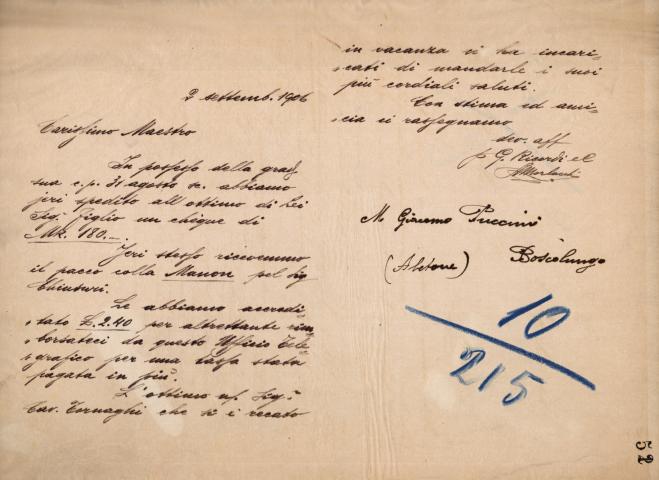 2 settemb. 1906
Carissimo Maestro
In possesso della grad.
sua c.p. 31 agosto sc. abbiamo
jeri spedito all'ottimo di Lei
Sig. figlio un chèque di
Mk. 180.—
Jeri stesso ricevemmo
il pacco colla Manon pel Sig
Chiusuri.
Le abbiamo accredi-
tato L. 2.40 per altrettante rim-
borsateci da questo Ufficio Tele-
grafico per una tassa stata
pagata in più.
L'ottimo ns. Sig.
Cav. Tornaghi che si è recato
in vacanza ci ha incari-
cati di mandarle i suoi
più cordiali saluti.
Con stima ed ami-
cizia ci rassegnamo
dev. aff
p G. Ricordi e C
M Giacomo Puccini
Boscolungo
(Abetone)
10
215
52